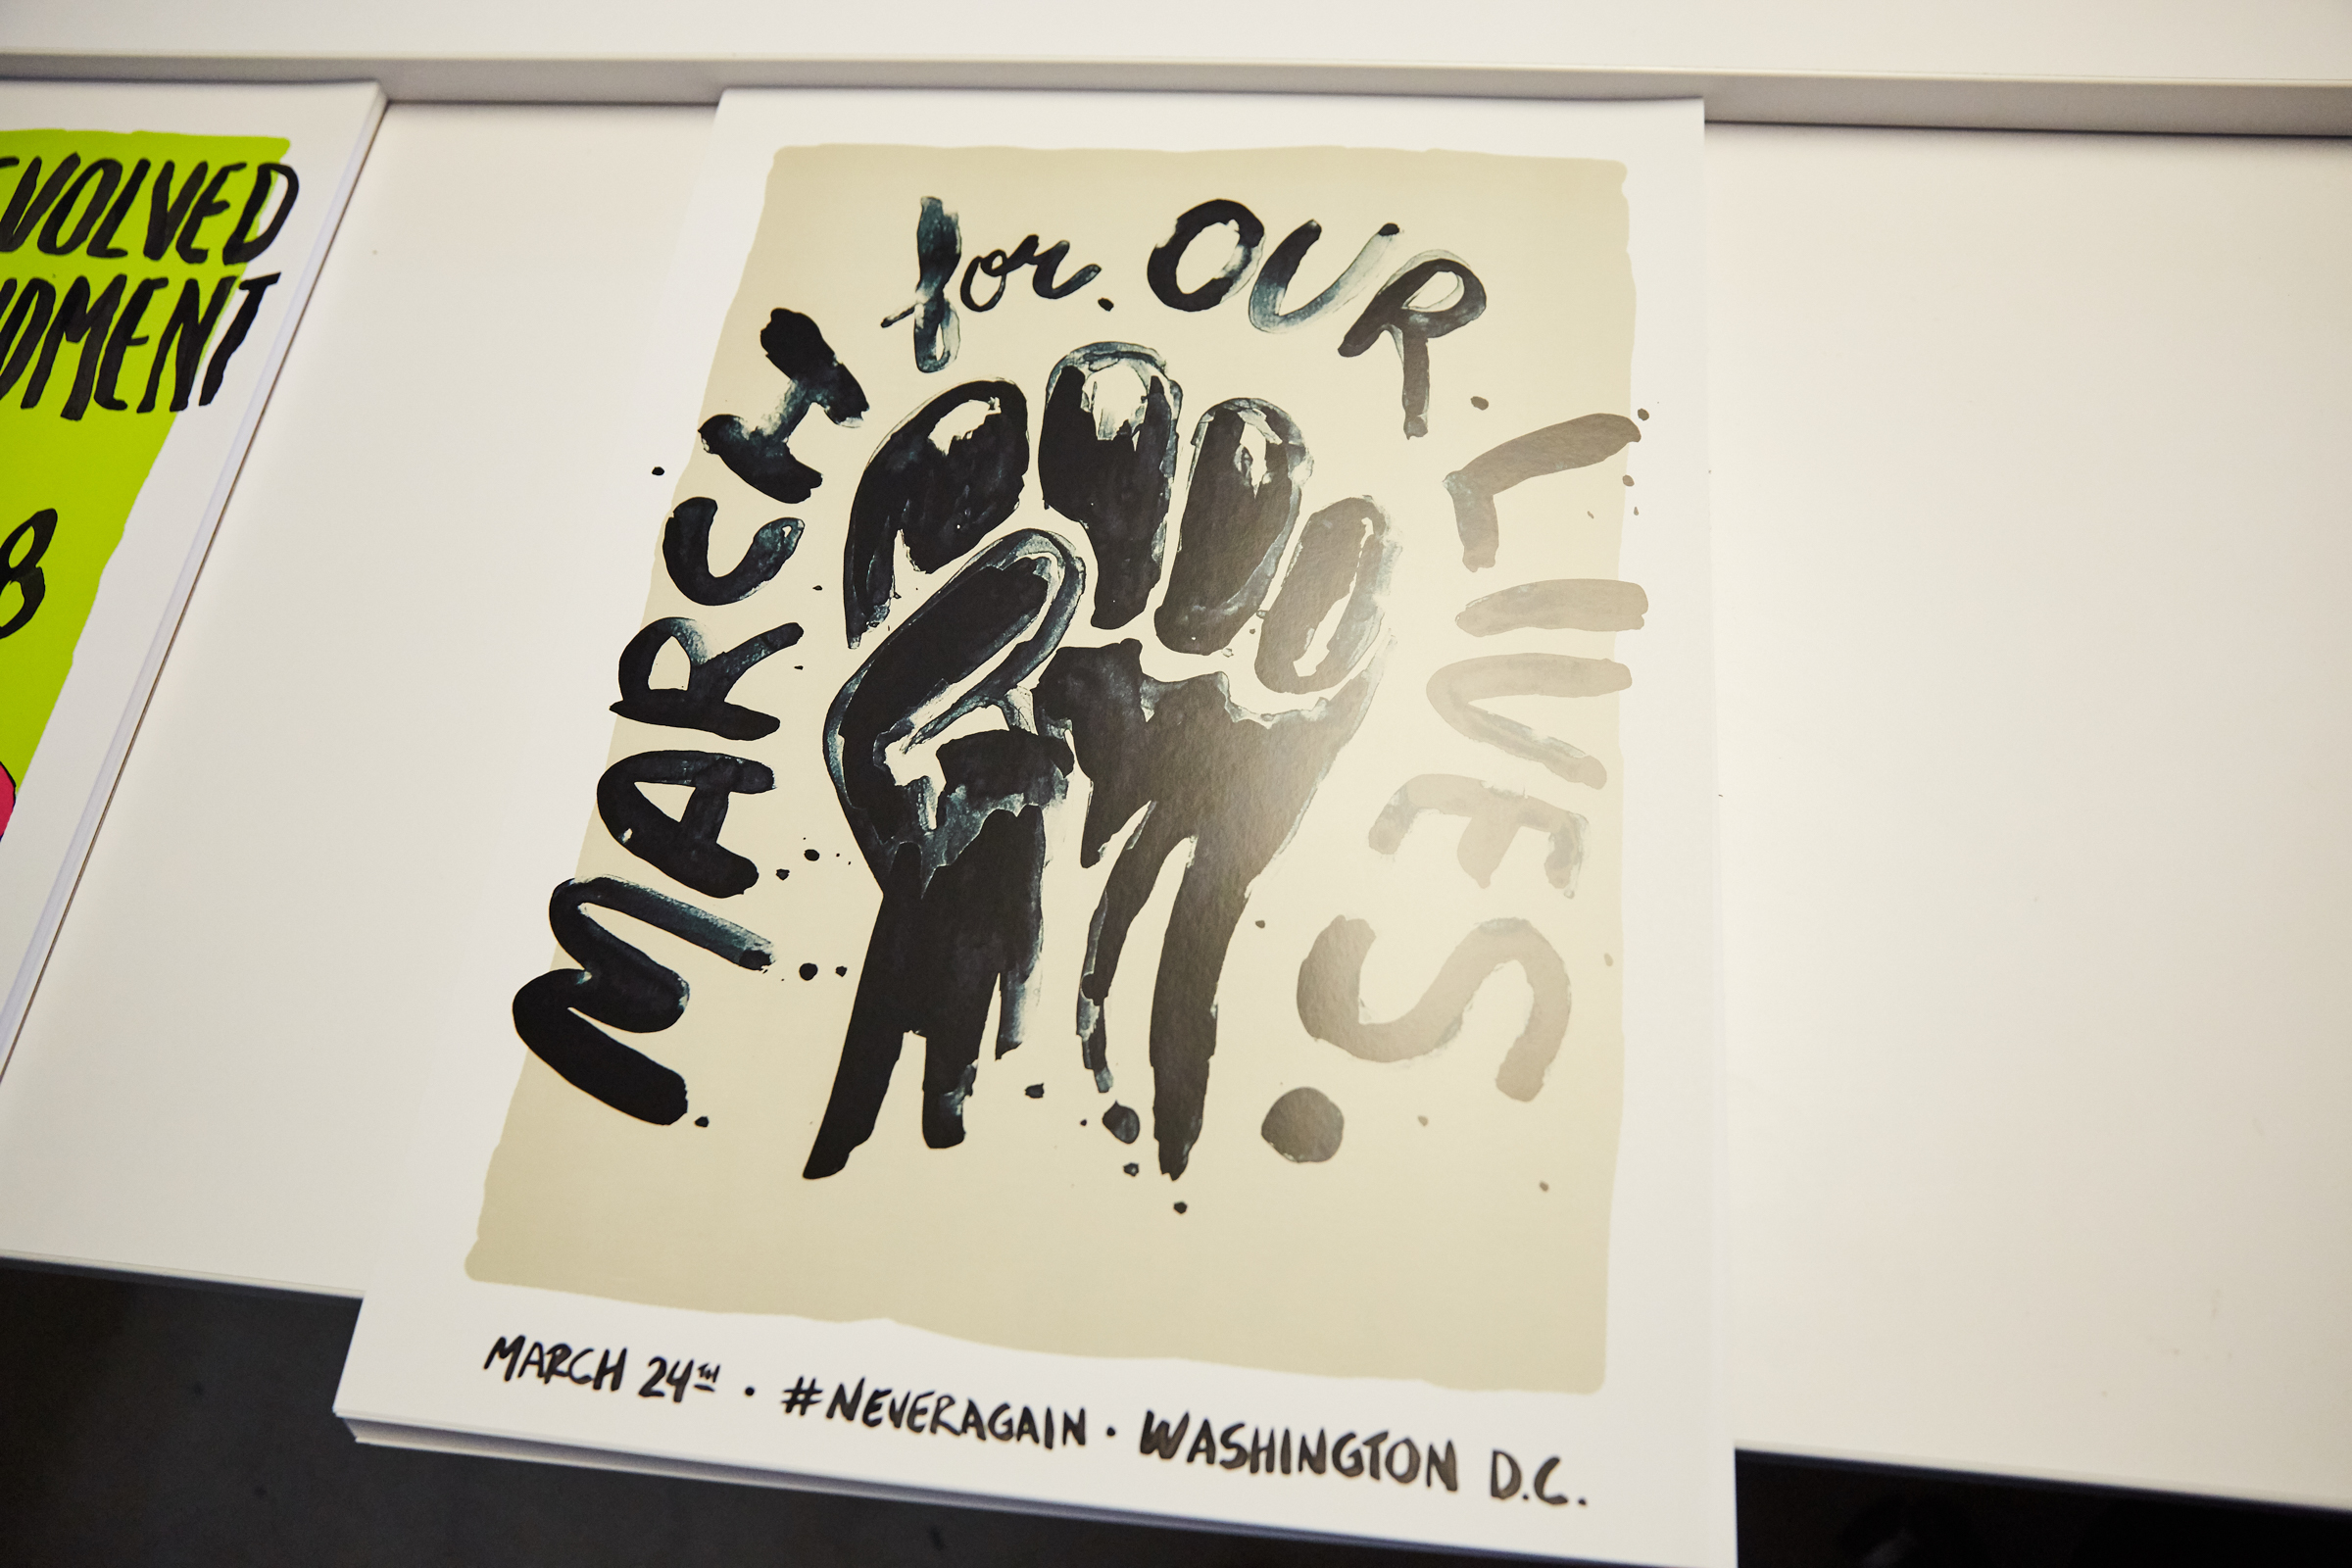 EVOLVED
8
MARCH for. OUR. LIVES.
MARCH 24TH • #NEVERAGAIN • WASHINGTON D.C.